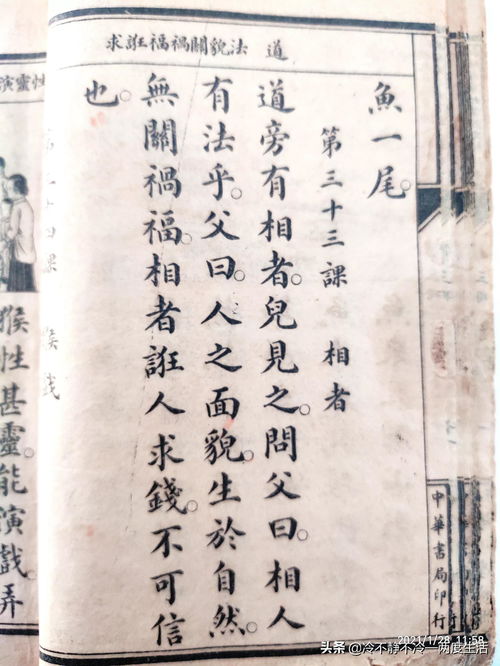 道 法貌關禍福誑求
魚一尾。
第三十三課 相者
道旁有相者。兒見之。問父曰。相人
有法乎。父曰。人之面貌。生於自然。
無關禍福。相者誑人求錢。不可信
也。
中華書局印行
猴戲
猴性甚靈。能演戲。弄
性靈演
2021/1/28 11:58
头条 @冷不静不冷一两度生活